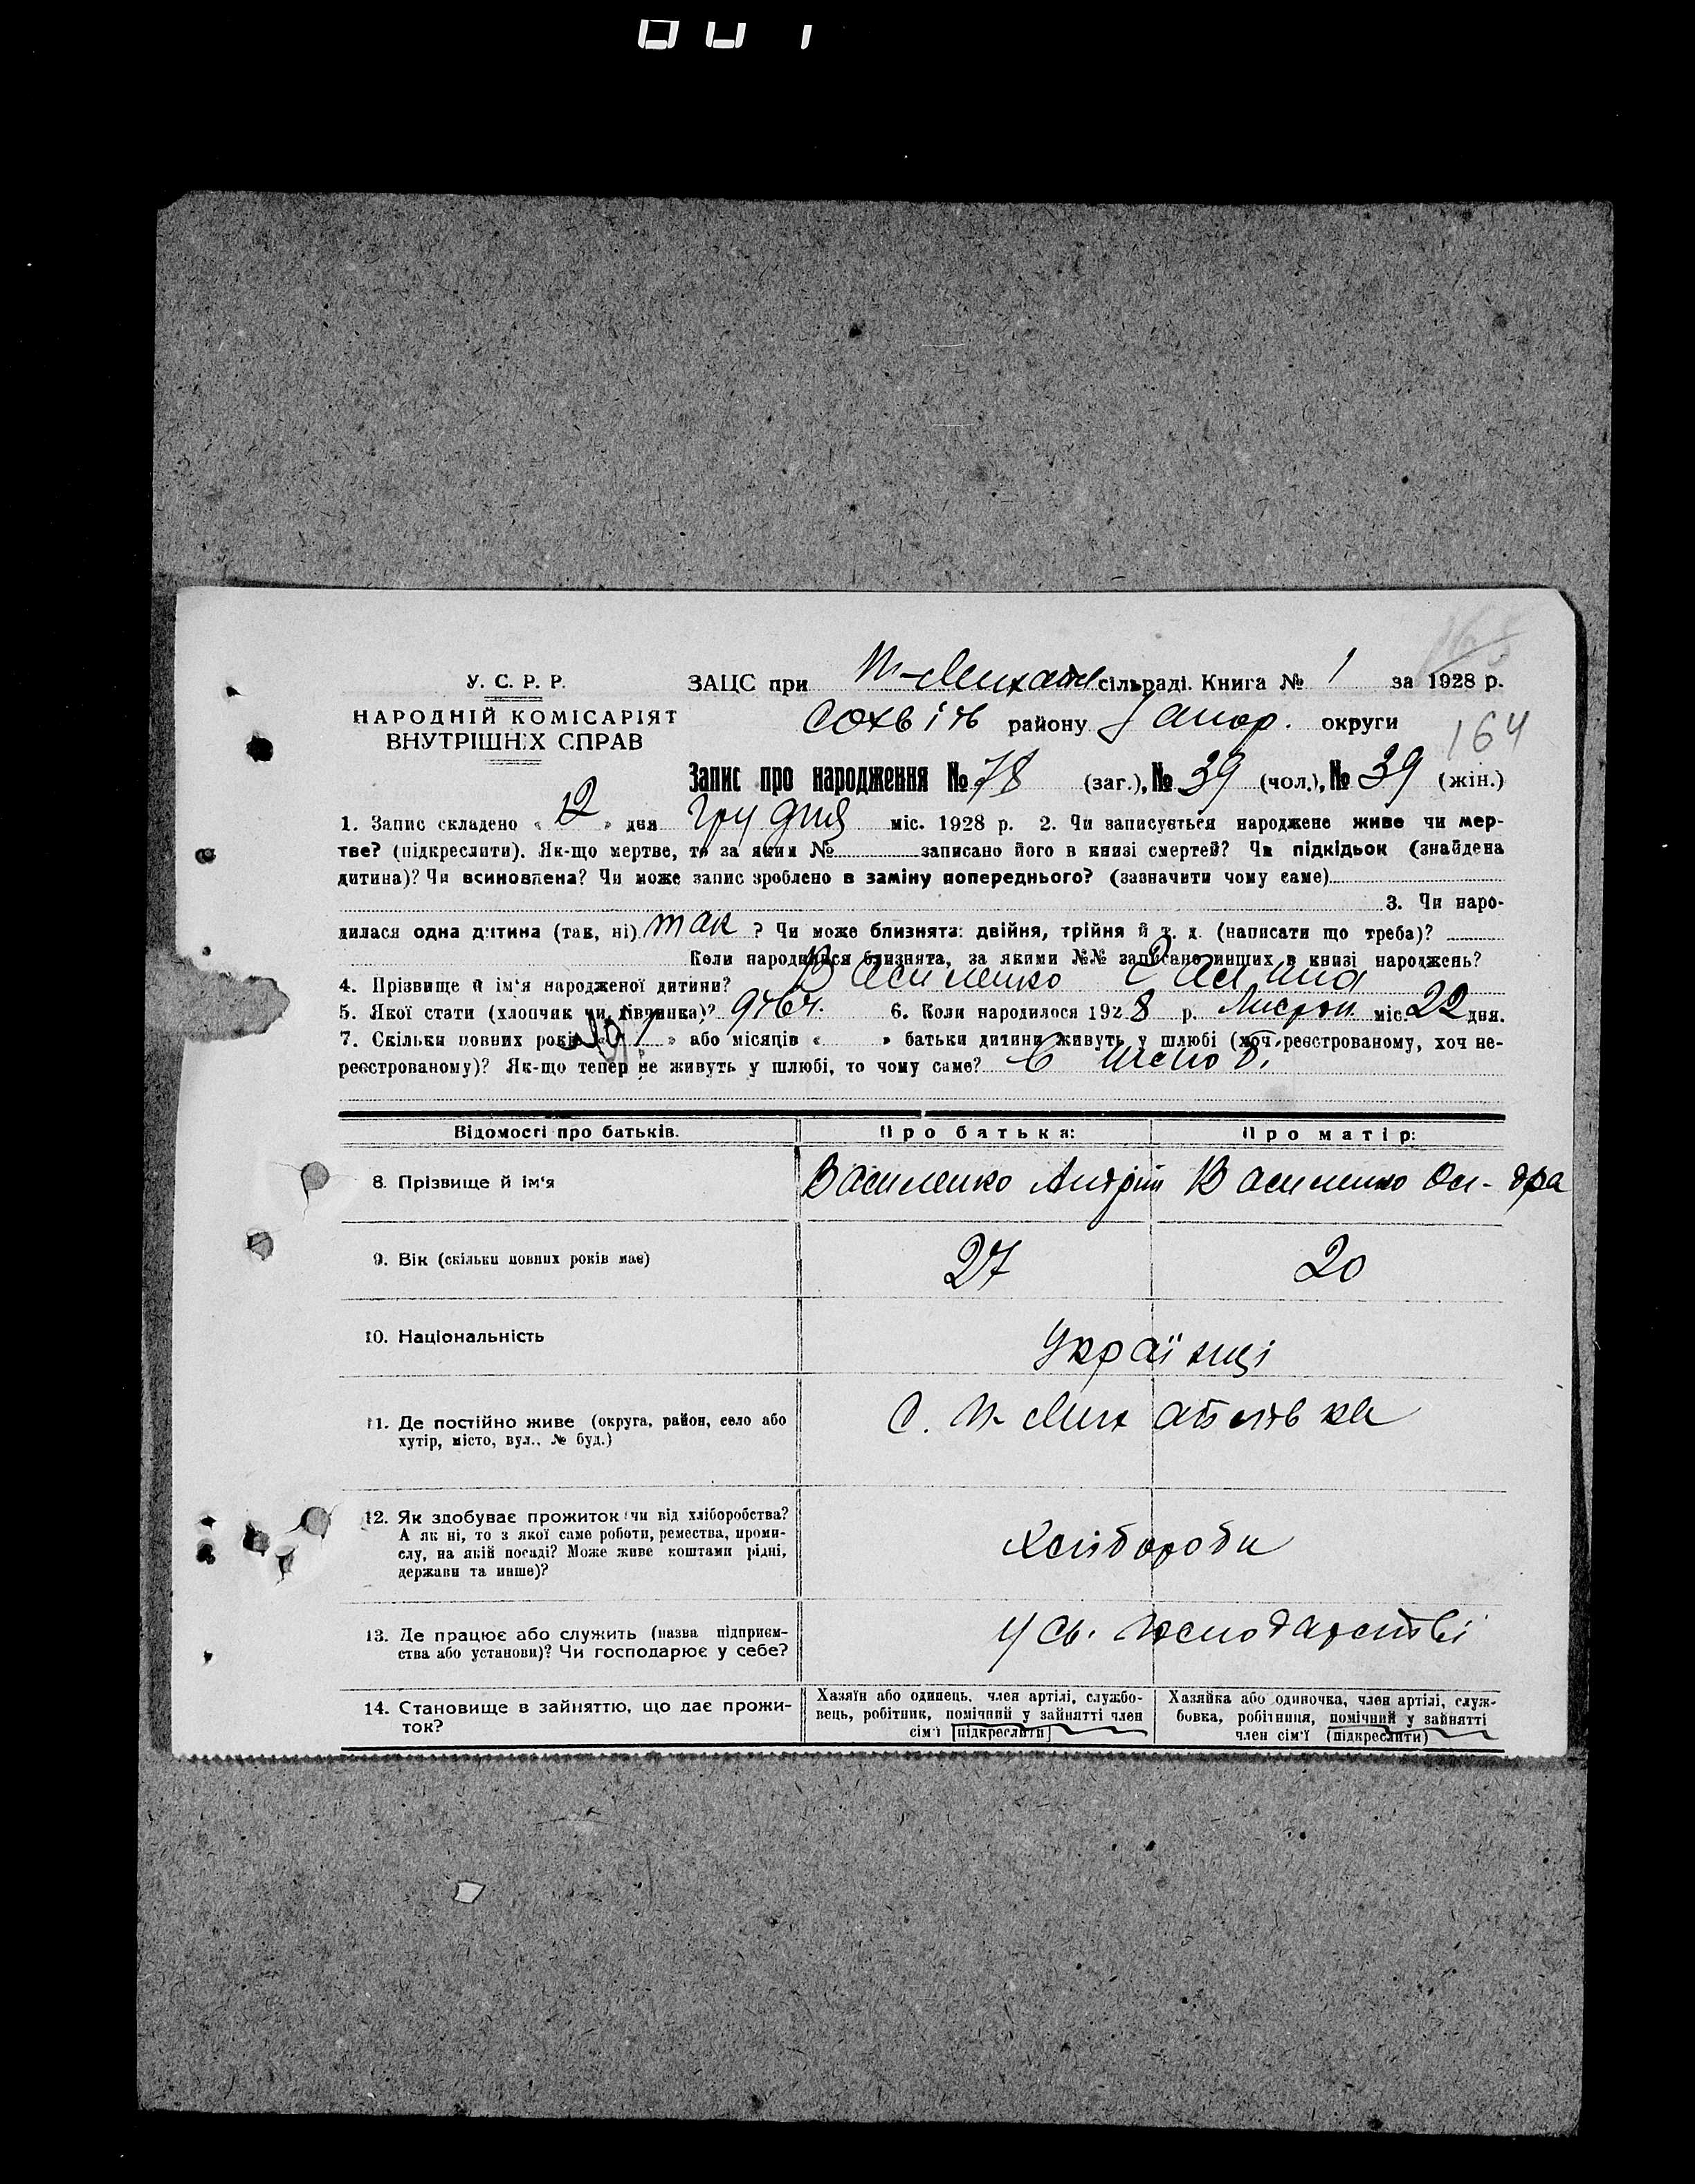 165
У. С. Р. Р.
НАРОДНІЙ КОМІСАРІЯТ
ВНУТРІШНІХ СПРАВ
ЗАЦС при сільраді. Книга № 1 за 1928 р.
району Запор. округи
164
Запис про народження № 78 (заг.), № 39 (чол.), № 39 (жін.)
1. Запис складено « 12 » дня грудня міс. 1928 р. 2. Чи записується народжене живе чи мер-
тве? (підкреслити). Як-що мертве, то за яким № записано його в книзі смертей? Чи підкідьок (знайдена
дитина)? Чи всиновлена? Чи може запис зроблено в заміну попереднього? (зазначити чому саме)
3. Чи наро-
дилася одна дитина (так, ні) так ? Чи може близнята: двійня, трійня й т. д. (написати що треба)?
Коли народилися близнята, за якими №№ записано инших в книзі народжень?
4. Прізвище й ім'я народженої дитини? Василенко
5. Якої стати (хлопчик чи дівчинка)? дівч. 6. Коли народилося 1928 р. Листоп. міс. 22 дня.
7. Скільки повних років « » або місяців « » батьки дитини живуть у шлюбі (хоч реєстрованому, хоч не-
реєстрованому)? Як-що тепер не живуть у шлюбі, то чому саме?
Відомості про батьків. Про батька: Про матір:
8. Прізвище й ім'я Василенко Андрій Василенко
9. Вік (скільки повних років має) 27 20
10. Національність Українці
11. Де постійно живе (округа, район, село або
хутір, місто, вул., № буд.)
с. Н-Михайлівка
12. Як здобуває прожиток чи від хліборобства?
А як ні, то з якої саме роботи, ремества, проми-
слу, на якій посаді? Може живе коштами рідні,
держави та инше)?
Хлібороби
13. Де працює або служить (назва підприєм-
ства або установи)? Чи господарює у себе?
У св. господарстві
14. Становище в зайняттю, що дає прожи-
ток?
Хазяїн або одинець, член артілі, службо-
вець, робітник, помічний у зайнятті член
сім'ї (підкреслити)
Хазяйка або одиночка, член артілі, служ-
бовка, робітниця, помічний у зайнятті
член сім'ї (підкреслити)